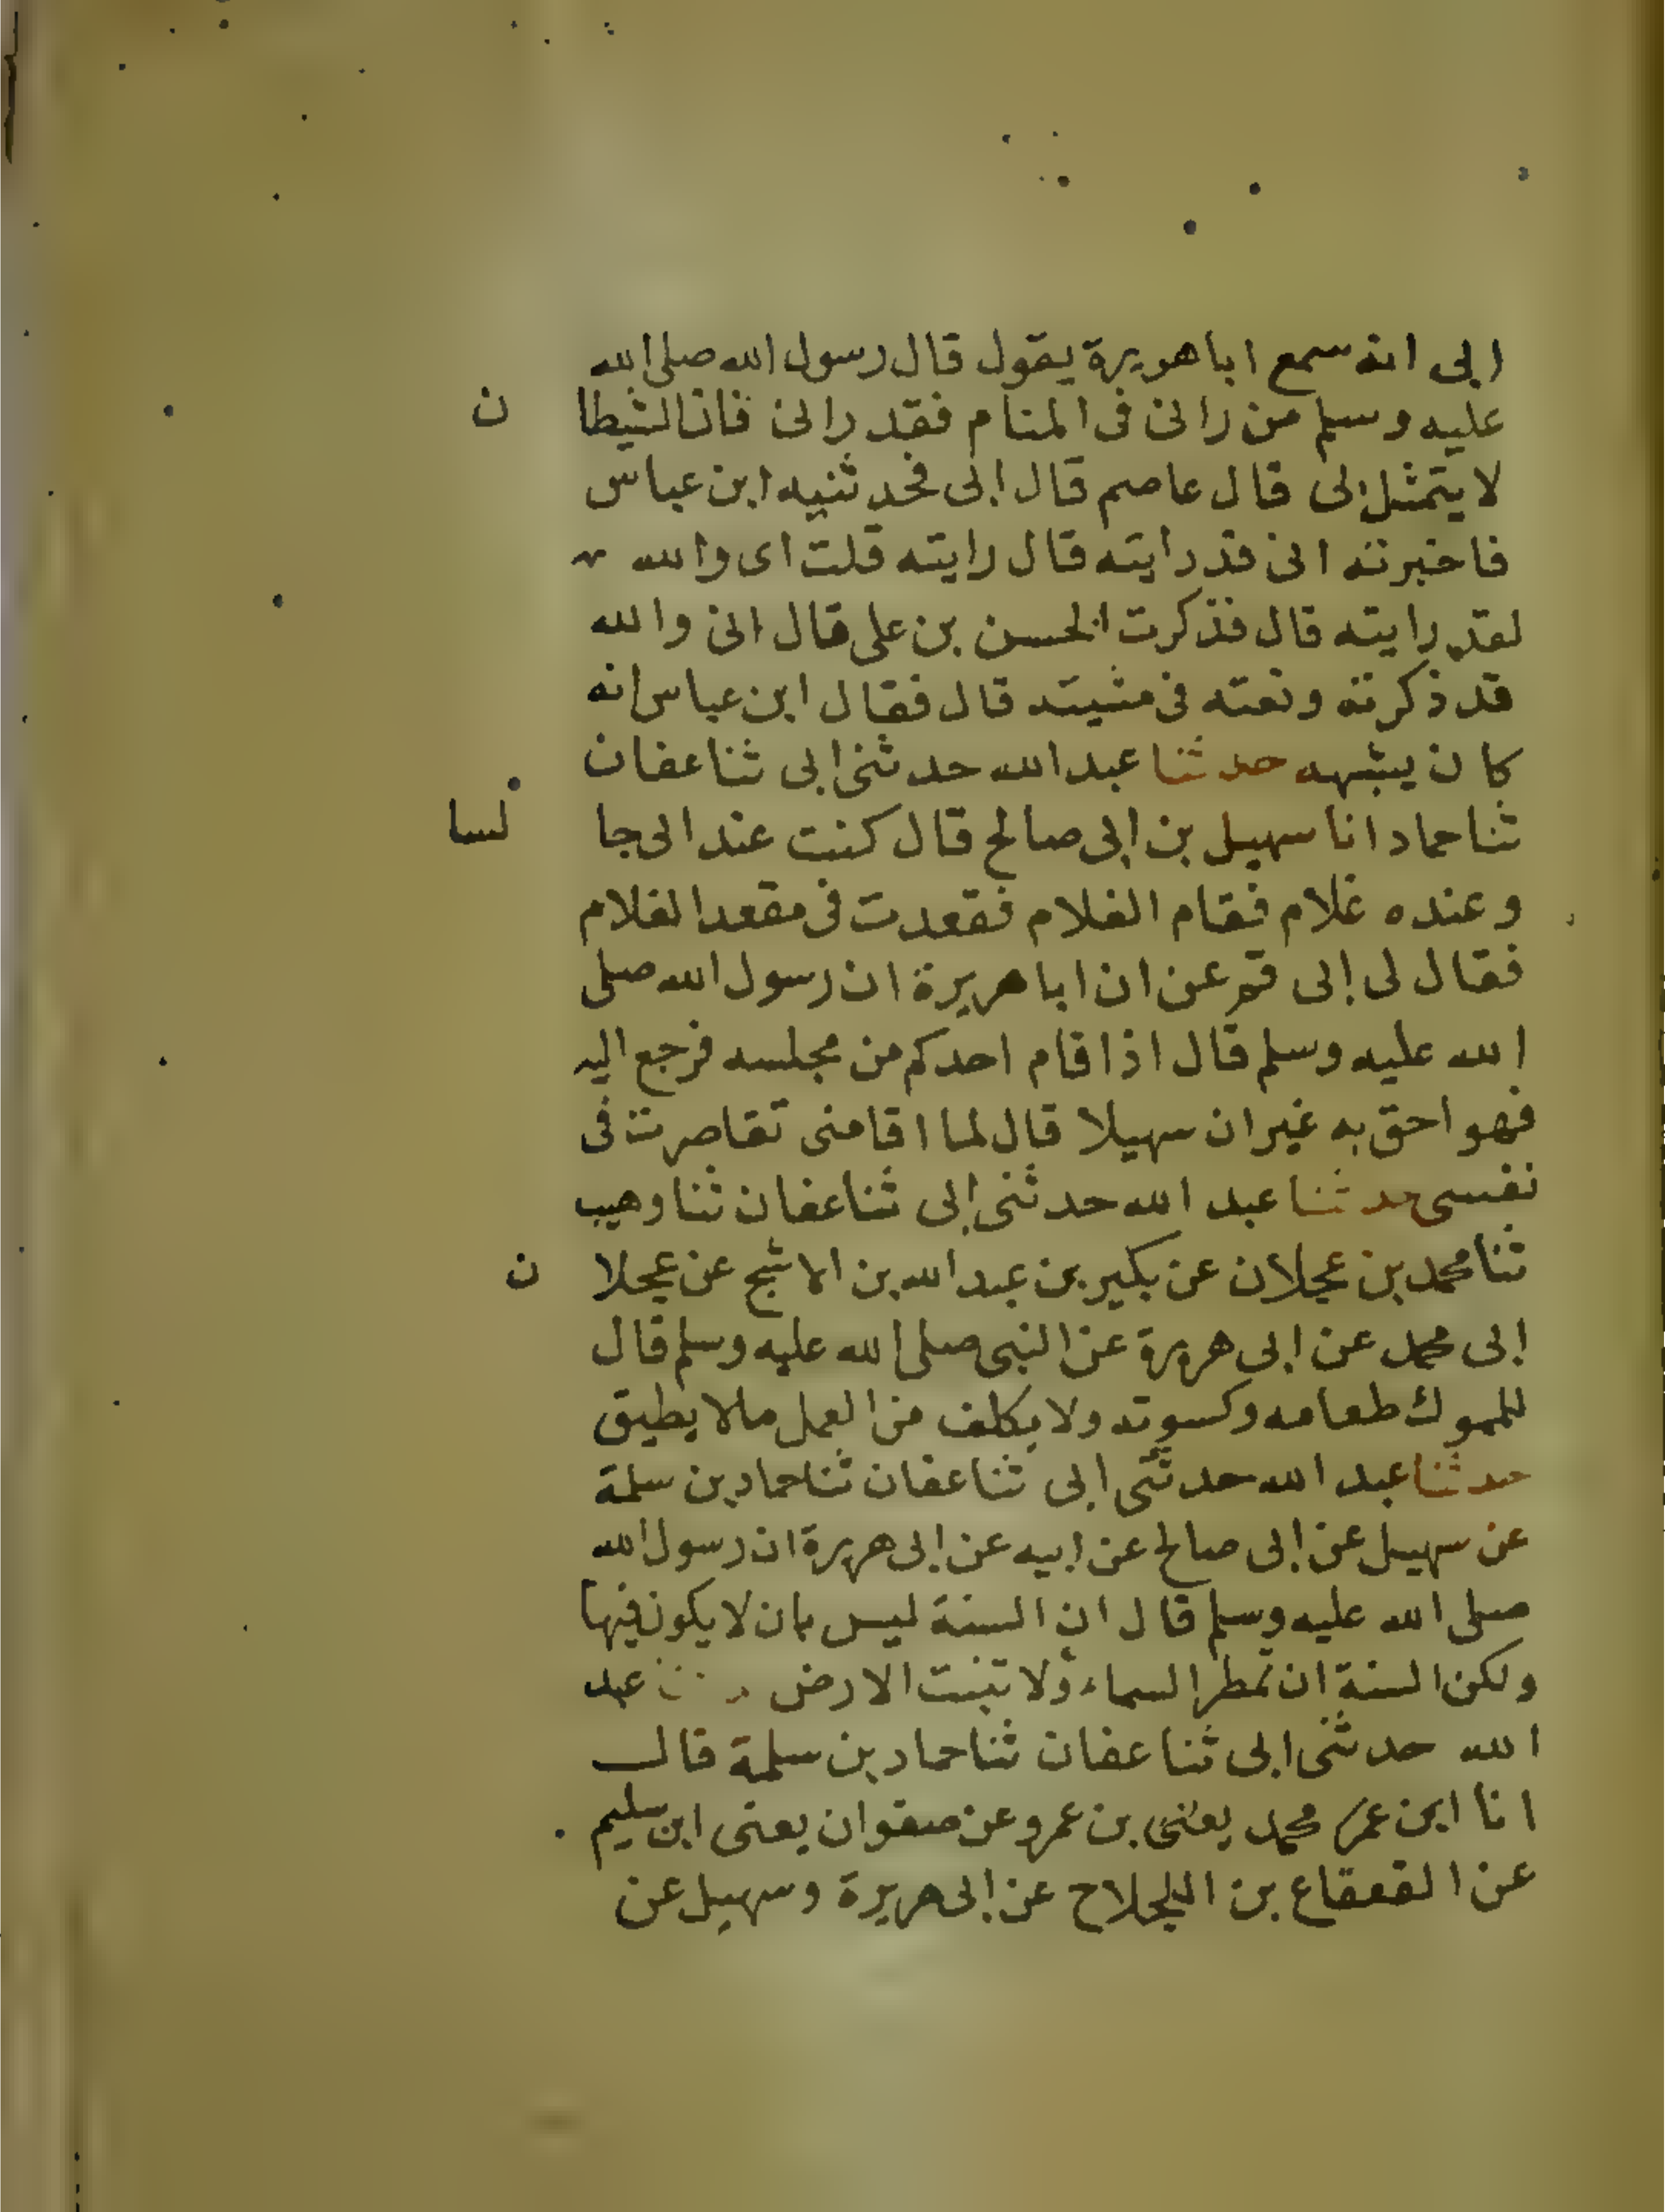 ابى انه سمع ابا هريرة يقول قال رسول الله صلى الله
عليه وسلم من رانى فى المنام فقد رانى فان الشيطا ن
لا يتمثل بى قال عاصم قال ابى فحدثنيه ابن عباس
فاخبرته انى قد رايته قال رايته قلت اى والله
لقد رايته قال فذكرت الحسن بن على قال انى والله
قد ذكرته ونعته فى مشيته قال فقال ابن عباس انه
كان يشبهه حدثنا عبد الله حدثنى ابى ثنا عفان
ثنا حماد انا سهيل بن ابى صالح قال كنت عند ابى جا لسا
وعنده غلام فقام الغلام فقعدت فى مقعد الغلام
فقال لى ابى قم عن ان ابا هريرة ان رسول الله صلى
الله عليه وسلم قال اذا قام احدكم من مجلسه فرجع اليه
فهو احق به غير ان سهيلا قال لما اقامنى تقاصرت فى
نفسى حدثنا عبد الله حدثنى ابى ثنا عفان ثنا وهيب
ثنا محمد بن عجلان عن بكير بن عبد الله بن الاشج عن عجلا ن
ابى محمد عن ابى هريرة عن النبى صلى الله عليه وسلم قال
للمموك طعامه وكسوته ولا يكلف من العمل ما لا يطيق
حدثنا عبد الله حدثنى ابى ثنا عفان ثنا حماد بن سلمة
عن سهيل عن ابى صالح عن ابيه عن ابى هريرة ان رسول الله
صلى الله عليه وسلم قال ان السنة ليس بان لا يكون فيها
ولكن السنة ان تمطر السماء ولا تنبت الارض عبد
الله حدثنى ابى ثنا عفان ثنا حماد بن سلمة قال
انا ابن عمر محمد يعنى بن عمرو عن صفوان يعنى ابن سليم
عن القعقاع بن اللجلاح عن ابى هريرة وسهيل عن